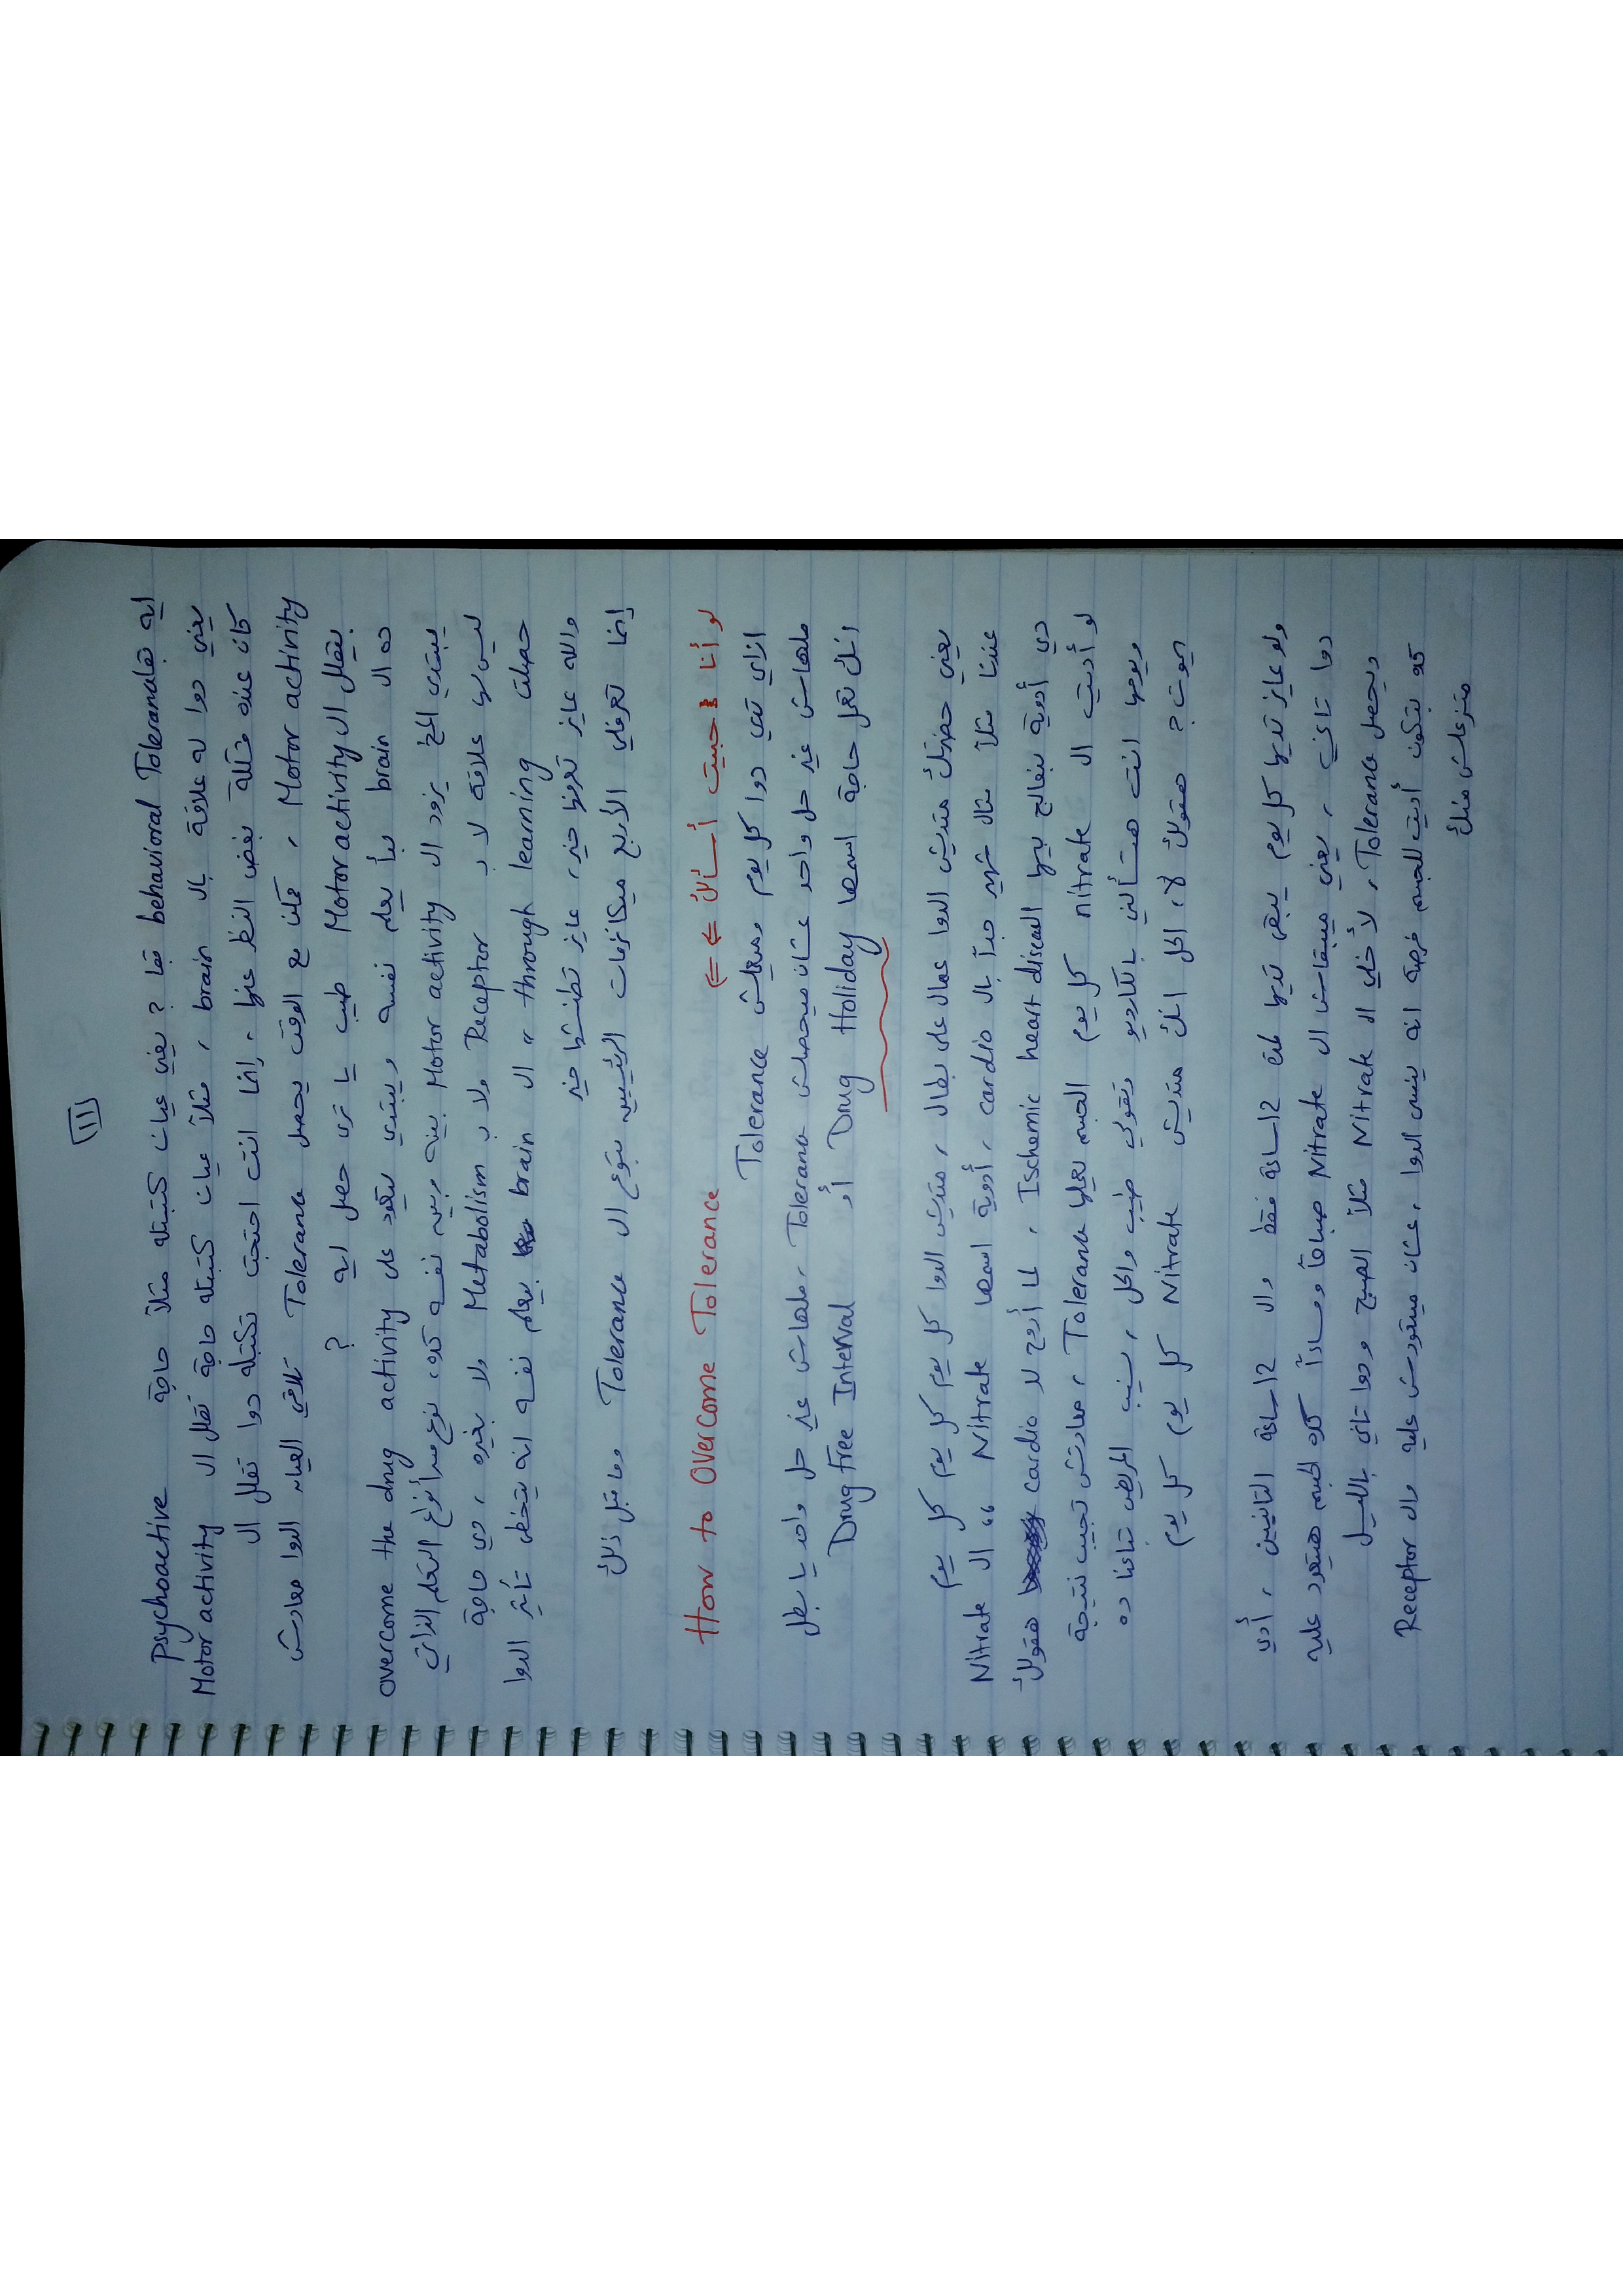 ١١
ايه بقا behavioral Tolerance بقا ? يعني عيان كتبتله مثلاً حاجة Psychoactive
يعني دوا له علاقة بال brain ، مثلاً عيان كتبتله حاجة تقلل ال Motor activity
كان عنده مشكلة بغض النظر عنها ، إنما انت احتجت تكتبله دوا تقلل ال
Motor activity ، ممكن مع الوقت يحصل Tolerance تلاقي العيان الدوا معادش
بيقلل ال Motor activity طيب يا ترى حصل ايه ?
ده ال brain بدأ يعلم نفسه ويبتدي يتعود على overcome the drug activity
يبتدي المخ يزود ال Motor activity بينه وبين نفسه كده، نوع من أنواع التعلم الذاتي
ليس لها علاقة لا ب Receptor ولا ب Metabolism ولا بغيره ، دي حاجة
حصلت through learning " ال brain بيعلم نفسه انه يتخطى تأثير الدوا
والله عايز تعرفها خير، عايز تطنشها خير
إنما تعرفلي الأربع ميكانزمات الرئيسيين بتوع ال Tolerance وما قبل ذلك
لو أنا حبيت أسألك ⇐ ⇐ How to Overcome Tolerance
ازاي تدي دوا كل يوم وميعملش Tolerance
ملهاش غير حل واحد عشان ميحصلش Tolerance ، ملهاش غير حل واحد يا بطل
انك تعمل حاجة اسمها Drug Holiday أو Drug Free Interval
يعني حضرتك متديش الدوا عمال على بطال ، متديش الدوا كل يوم كل يوم كل يوم
عندنا مثلاً مثال شهير جداً بال cardio ، أدوية اسمها Nitrate " ال Nitrate
دي أدوية بنعالج بيها ال Ischemic heart disease ، لما أروح لل cardio هقولك
لو أديت ال nitrate كل يوم الجسم يعملها Tolerance ، معادتش تجيب نتيجة
ويومها انت هتسألني بالكارديو وتقولي طيب والحل ، نسيب المريض بتاعنا ده
يموت ? هقولك لا، الحل انك متديش Nitrate كل يوم كل يوم
ولو عايز تديها كل يوم يبقى تديها لمدة 12 ساعة فقط وال 12 ساعة التانيين ، أدي
دوا تاني ، يعني ميبقاش ال Nitrate صباحاً ومساءاً كده الجسم هيتعود عليه
ويحصل Tolerance ، لأ خلي ال Nitrate مثلاً الصبح ودوا تاني بالليل
كده بتكون أديت للجسم فرصة انه ينسى الدوا ، عشان ميتعودش عليه وال Receptor
متزعلش منك